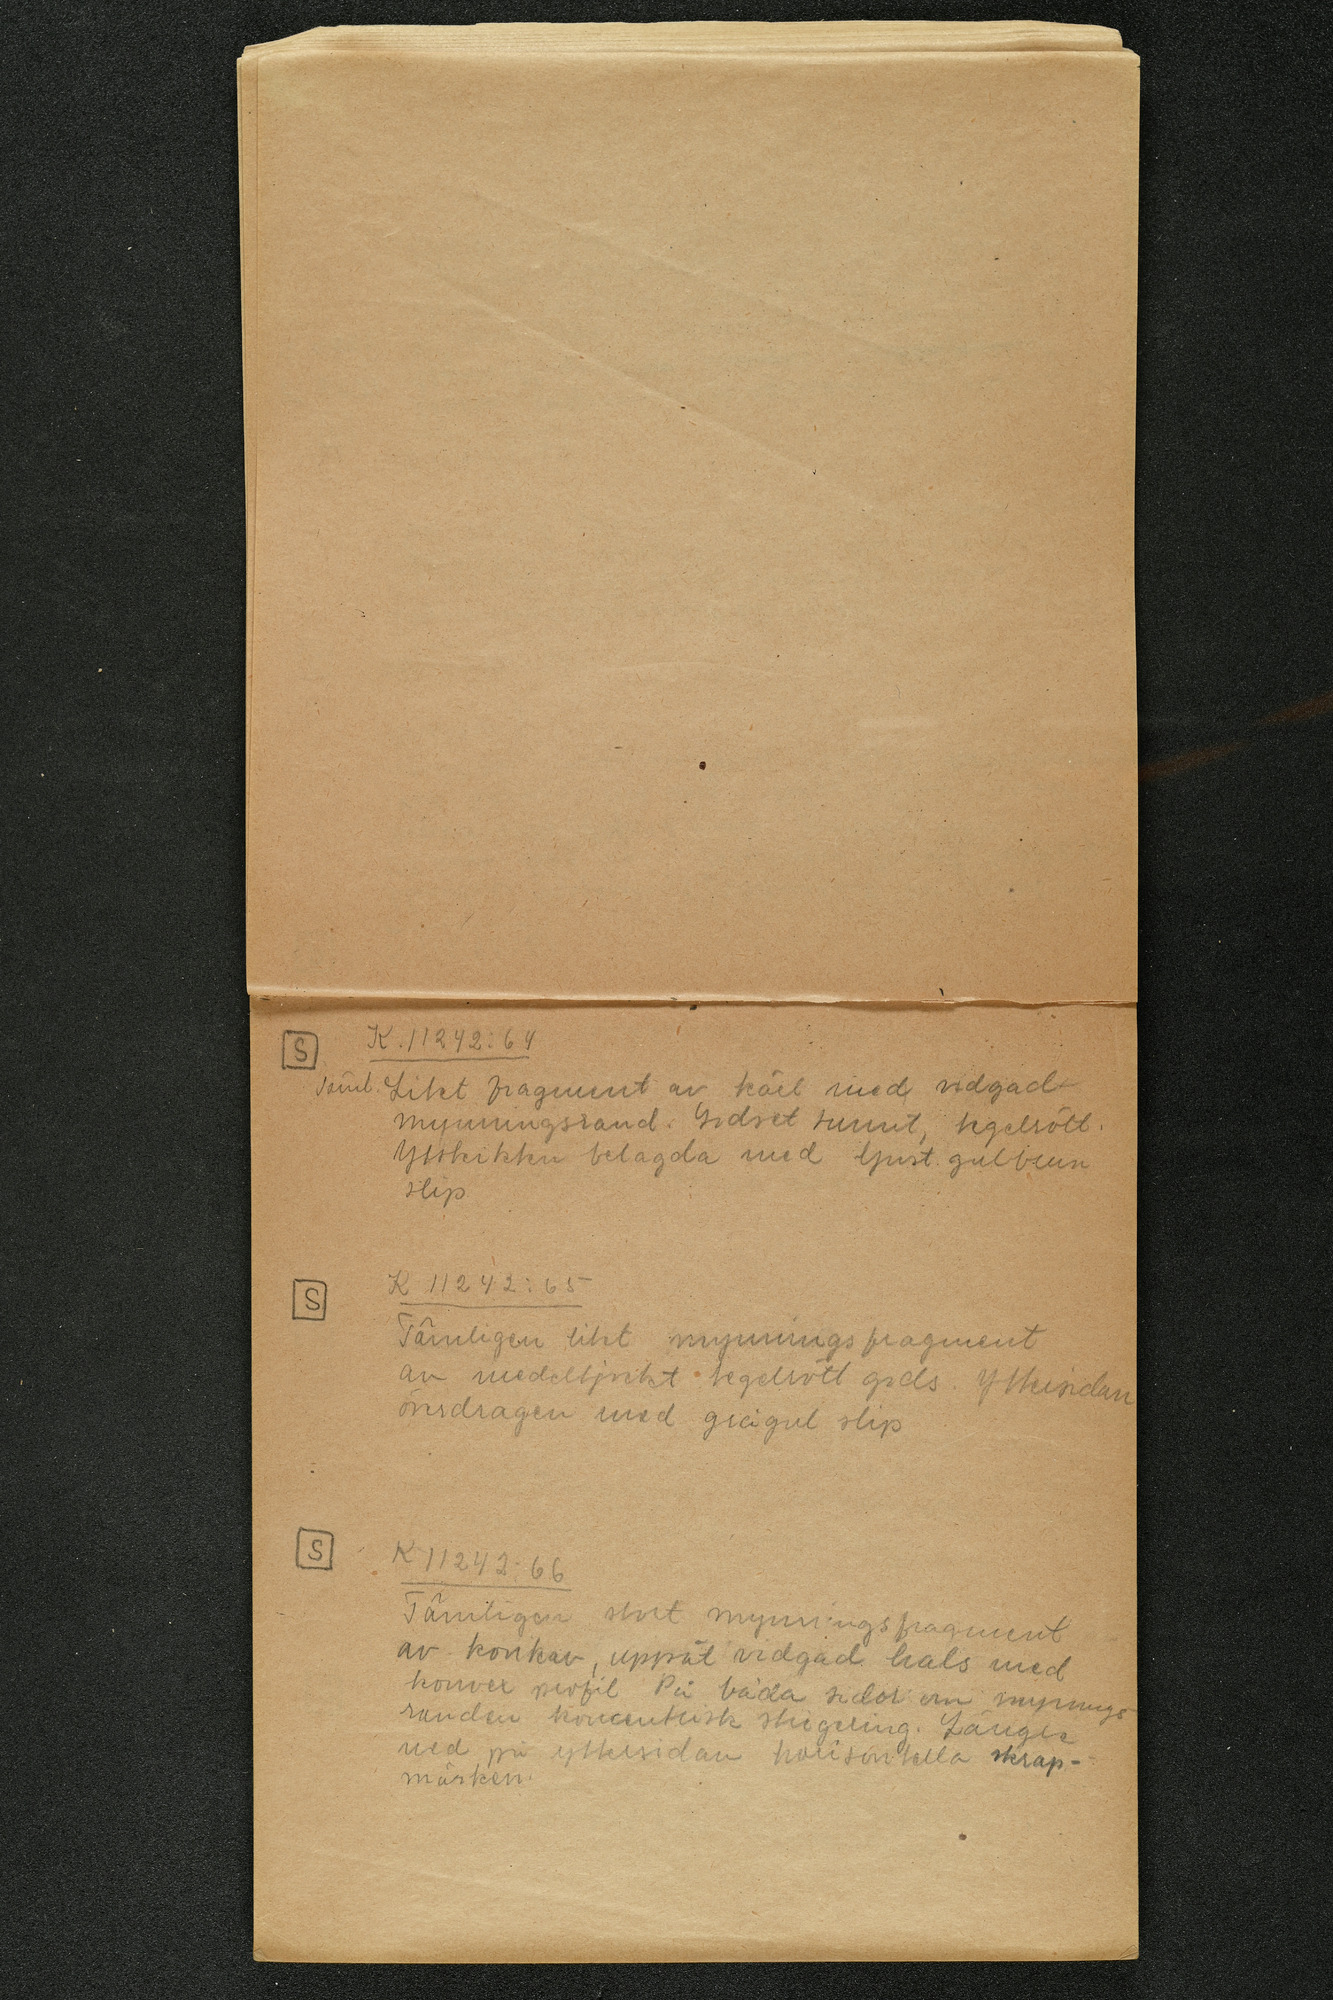 S K. 11242:64
Täml. Litet fragment av kärl med vidgad
mynningsrand. Godset tunnt, tegelrött.
Ytskikten belagda med ljust gulbrun
slip
S K 11242:65
Tämligen litet mynningsfragment
av medeltjockt tegelrött gods. Yttersidan
överdragen med grågul slip
S K 11242:66
Tämligen stort mynningsfragment
av konkav, uppåt vidgad hals med
konvex profil På båda sidor om mynnings
randen koncentrisk striering. Längre
ned på yttersidan horisontella skrap-
märken.